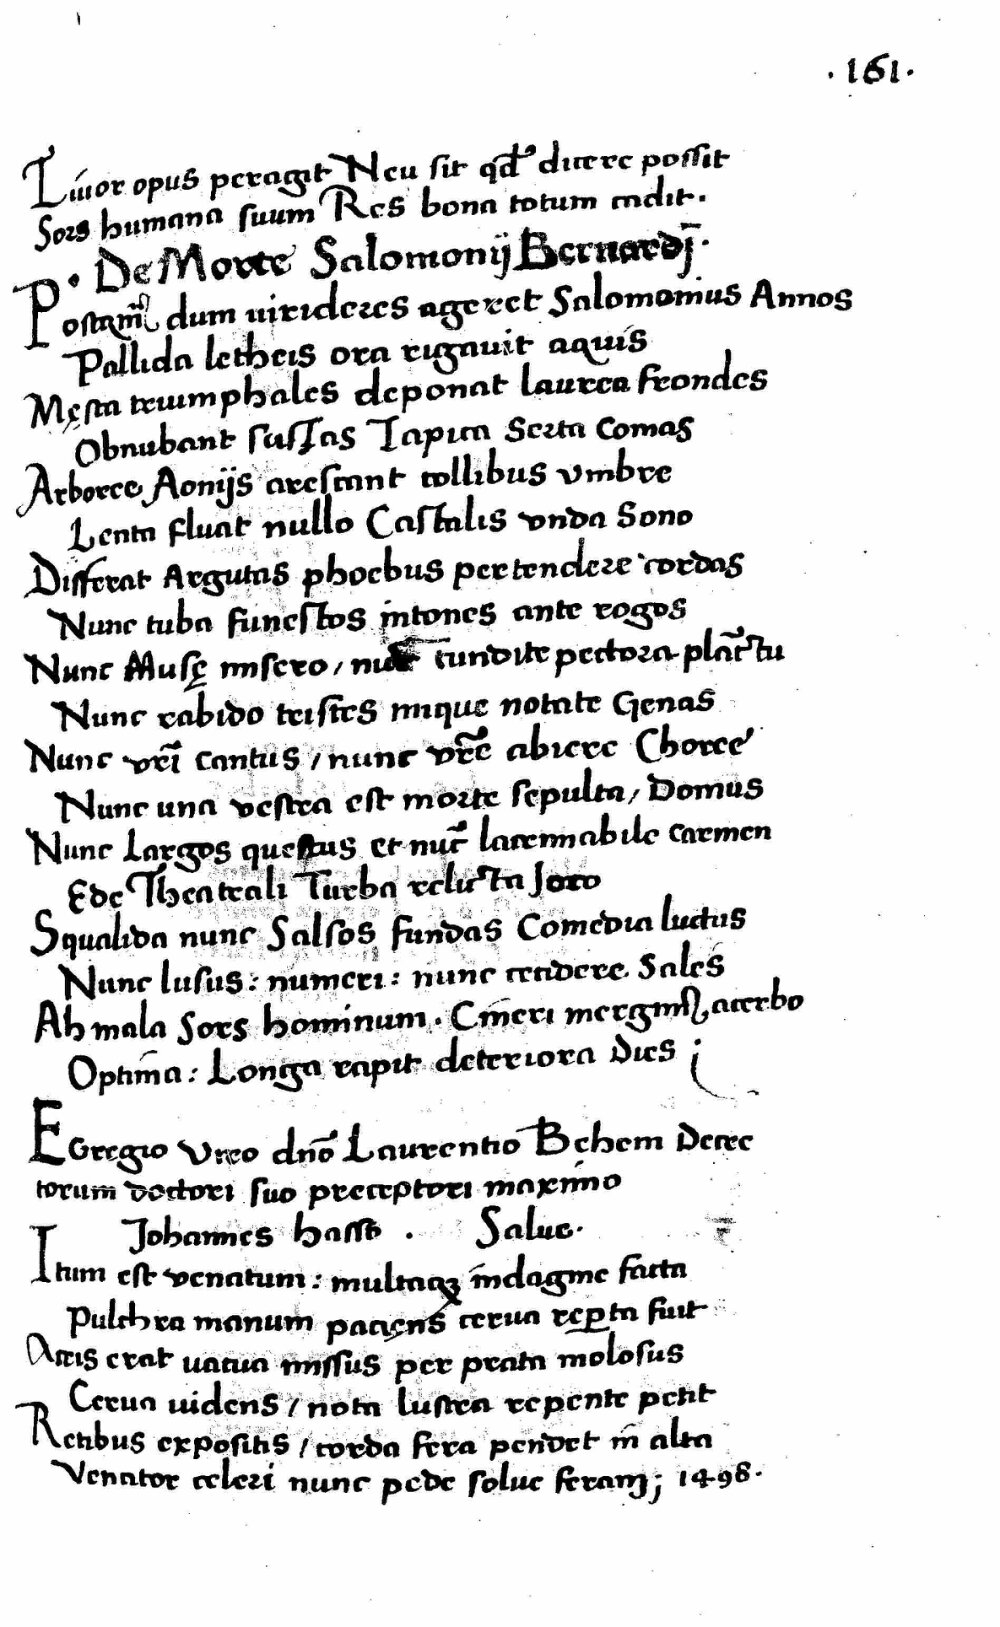 · 161 ·
Liuor opus peragit Neu sit qd̕ dicere possit
Sors humana suum Res bona totum cadit.
· De Morte Salomonij Bernardj̄ ·
Postqm̄ dum uirideres ageret Salomonius Annos
Pallida letheis ora rigauit aquis
Męsta triumphales deponat laurea frondes
Obnubant sustas Tapica Serta Comas
Arborce Aonijs arescant collibus vmbre
Lenta fluat nullo Castalis vnda Sono
Differat Argutas phoebus pertendere cordas
Nunc tuba funestos intones ante rogos
Nunc Musę misero / nūc tundite pectora plāctu
Nunc rabido tristes ungue notate Genas
Nunc vr̄i cantus / nunc vr̄e abiere Choree
Nunc una vestra est morte sepulta / Domus
Nunc Largos questus et nūc lacrimabile carmen
Ede Theatrali Turba relicta Joco
Squalida nunc Salsos fundas Comedia luctus
Nunc lusus : numeri : nunc cendere Sales
Ah mala Sors hominum . Cineri mergimꝰ acerbo
Optima : Longa rapit deteriora Dies ;
Egregio Viro dn̄o Laurentio Behem Decre
torum doctori suo preceptori maximo
Johannes hasse . Salue .
Itum est venatum : multaqꝫ indagine facta
Pulchra manum pacięns cerua rep̱ta fuit
Acris erat uacua missus per prata molosus
Cerua uidens / nota lustra repente petit
Retibus expositis / corda fera pendet in alta
Venator celeri nunc pede solue feram ; 1498 .